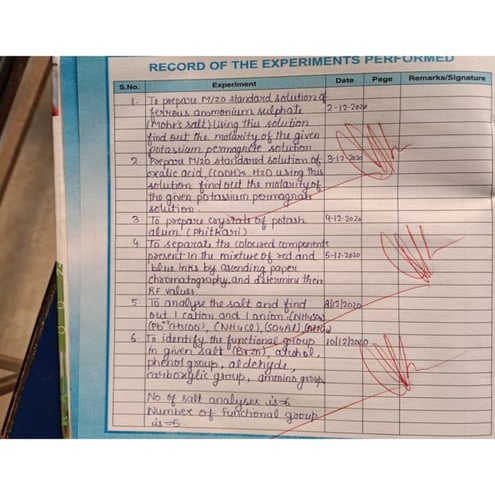 RECORD OF THE EXPERIMENTS PERFORMED
S.No. Experiment Date Page Remarks/Signature
1. To prepare M/20 standard solution of
ferrous ammonium sulphate 2-12-2020
(Mohr's salt) Using this solution
find out the molarity of the given
potassium permagnate solution
2. Prepare M/20 standard solution of 3-12-2020
oxalic acid, (COOH)2 H2O using this
solution find out the molarity of
the given potassium permagnate
solution.
3. To prepare crystals of potash 4-12-2020
alum. (Phitkari)
4. To separate the coloured components
present in the mixture of red and 5-12-2020
blue inks by ascending paper
chromatography and determine their
RF values.
5. To analyse the salt and find 8/12/2020
out 1 cation and 1 anion.
6. To identify the functional group 10/12/2020
in given salt alcohol,
phenol group, aldehyde,
carboxylic group, ammino group.
No. of salt analyses is=6
Number of functional group
is=5